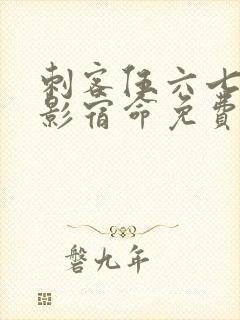 刺客伍六七
影宿命免费
磐九年